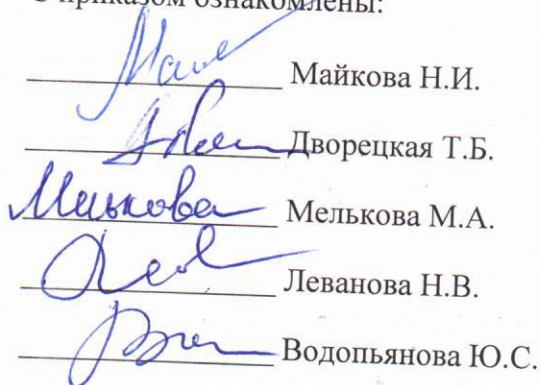 С приказом ознакомлены:
Майкова Н.И.
Дворецкая Т.Б.
Мелькова Мелькова М.А.
Леванова Н.В.
Водопьянова Ю.С.